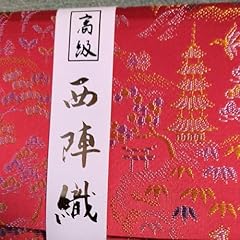 高級
西陣織